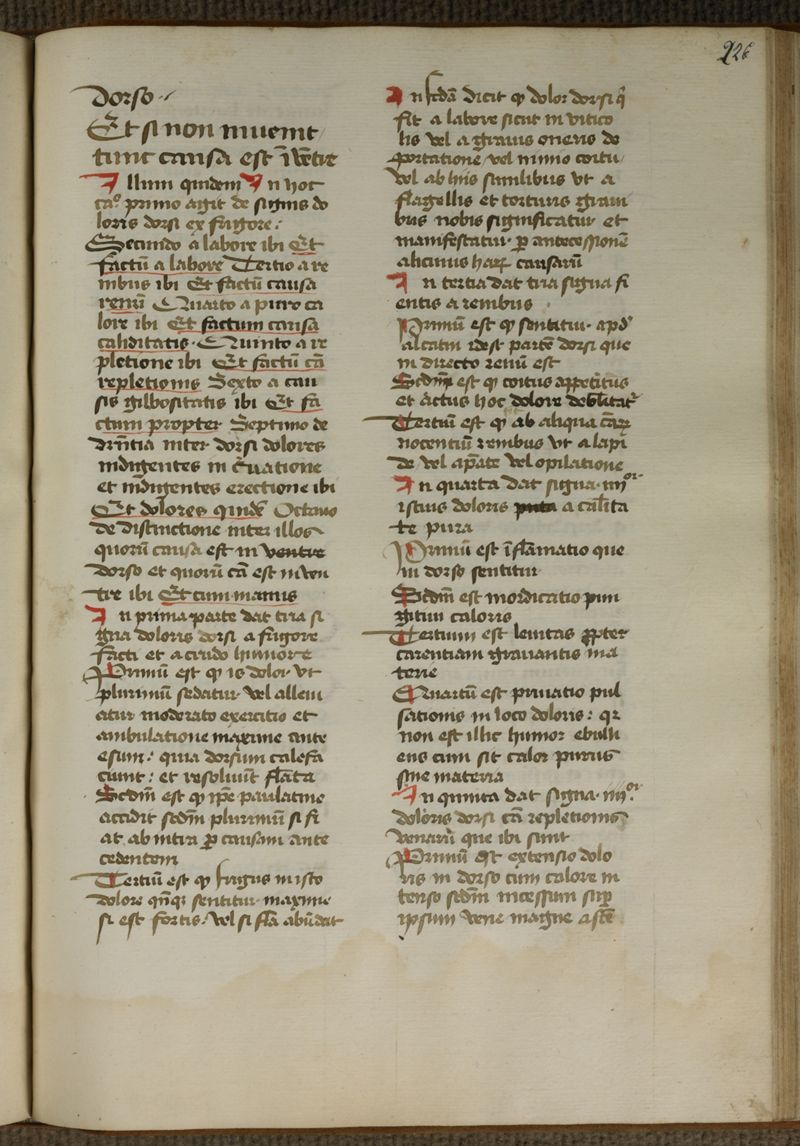 226
dorso
Et si non inuenit
tunc causa est ī vētre
Illum quidem In hoc
ca.º primo agit de signis do
loris dorsi ex frigore:
Secundo a labore ibi Et
factū a labore Tertio a re
nibus ibi Et factū causa
renū Quarto a puro ca
lore ibi Et factum causa
caliditatis. Quinto a re
pletione ibi Et factū cā
repletionis Sexto a cau
sis gilbositatis ibi Et fa
ctum propter Septimo de
drn̄tia inter dorsi dolores
indigentes in
et indigentes erectione ibi
Et dolores quidē Octauo
de distinctione inter illos
quorū causa est in ventre
dorso et quorū cā est in ven
tre ibi Et cum mamis
In prima parte dat tria si
gna doloris dorsi a frigore
facti et a crudo humore
Primū est qꝫ is dolor vt
plurimū sedatur vel alleui
atur moderato exercitio et
ambulatione maxime ante
esum: quia dorsum calefa
ciunt: et resoluūt flāta
Scdm̄ est qꝫ ip̄e paulatine
accidit scdm̄ plurimū si fi
at ab intra ꝑ causam ante
cedentem
Tertiū est qꝫ frigus in isto
dolore qn̄qꝫ sentitur maxime
si est fortis. vel si flā abūdat
In scdā dicit qꝫ dolor dorsi q̄
fit a labore sicut in vitico
lis vel a grauis oneris de
portatione vel nimio coitu
vel ab hiis similibus vt a
flagellis et torturis graui
bus nobis significatur et
manifestatur ꝑ antecessionē
alicuius haꝝ causarū
In tertia dat tria signa fi
entis a renibus
Primū est qꝫ sentitur apd'
alcatin idest partē dorsi que
in directo renū est
Scdm̄ est qꝫ coitus appetitus
et actus hoc dolore debilitat~
Tertiū est qꝫ ab aliqua cāꝝ
nocentiū renibus vt a lapi
de vel apāte vel opilatione
In quarta dat signa .iiijor.
istius doloris puta a calīta
te pura
Primū est īflāmatio que
in dorso sentitur
Scdm̄ est mordicatio pun
gitiui caloris
Tertium est leuitas ꝓpter
carentiam grauantis ma
terie
Quartū est priuatio pul
sationis in loco doloris: qꝛ
non est illic humor ebulli
ens cum sit calor purus
sine materia
In quinta dat signa .iiijor.
doloris dorsi cā repletionis
venarū que ibi sunt
Primū est extensio dolo
ris in dorso cum calore in
tenso scdm̄ incessum sup̄
ipsum vene magne